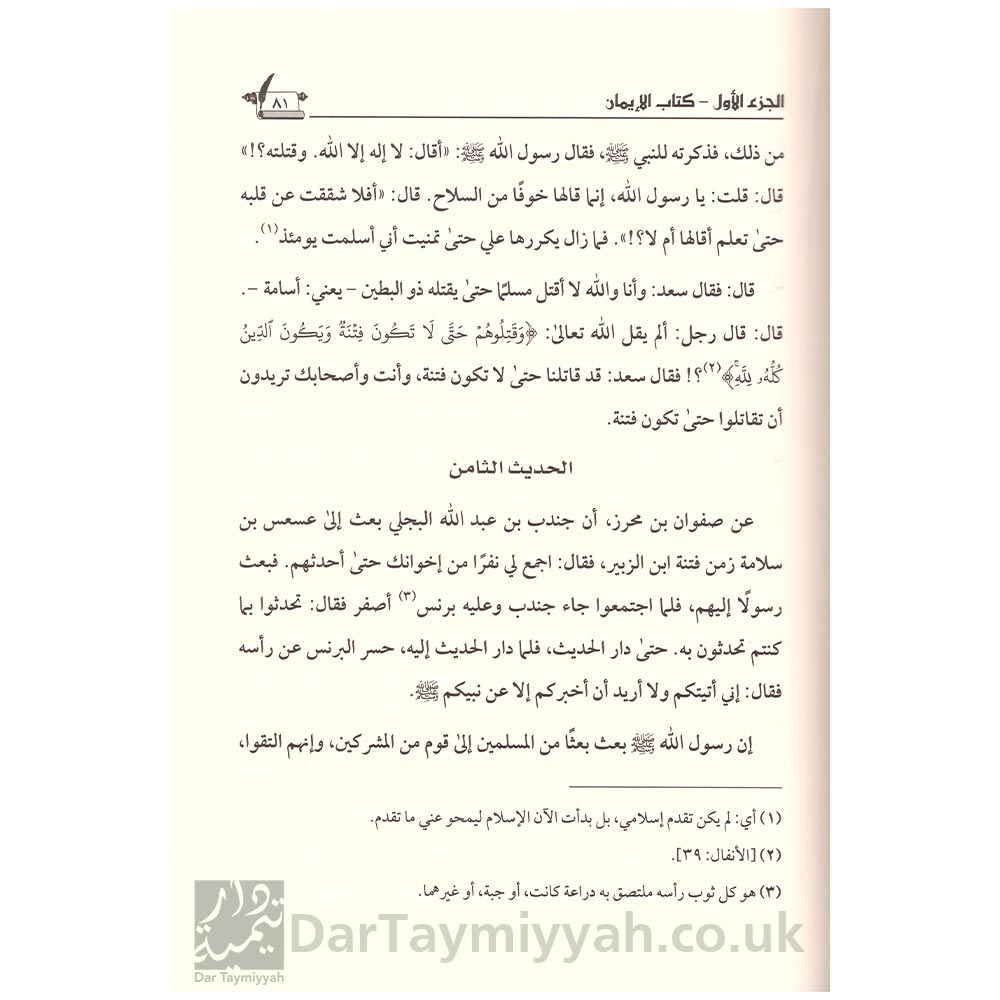 الجزء الأول – كتاب الإيمان
٨١
من ذلك، فذكرته للنبي ﷺ، فقال رسول الله ﷺ: «أقال: لا إله إلا الله. وقتلته؟!»
قال: قلت: يا رسول الله، إنما قالها خوفًا من السلاح. قال: «أفلا شققت عن قلبه
حتىٰ تعلم أقالها أم لا؟!». فما زال يكررها علي حتىٰ تمنيت أني أسلمت يومئذ(١).
قال: فقال سعد: وأنا والله لا أقتل مسلمًا حتىٰ يقتله ذو البطين – يعني: أسامة –.
قال: قال رجل: ألم يقل الله تعالىٰ: ﴿وَقَٰتِلُوهُمۡ حَتَّىٰ لَا تَكُونَ فِتۡنَةٞ وَيَكُونَ ٱلدِّينُ
كُلُّهُۥ لِلَّهِۚ﴾(٢)؟! فقال سعد: قد قاتلنا حتىٰ لا تكون فتنة، وأنت وأصحابك تريدون
أن تقاتلوا حتىٰ تكون فتنة.
الحديث الثامن
عن صفوان بن محرز، أن جندب بن عبد الله البجلي بعث إلىٰ عسعس بن
سلامة زمن فتنة ابن الزبير، فقال: اجمع لي نفرًا من إخوانك حتىٰ أحدثهم. فبعث
رسولًا إليهم، فلما اجتمعوا جاء جندب وعليه برنس(٣) أصفر فقال: تحدثوا بما
كنتم تحدثون به. حتىٰ دار الحديث، فلما دار الحديث إليه، حسر البرنس عن رأسه
فقال: إني أتيتكم ولا أريد أن أخبركم إلا عن نبيكم ﷺ.
إن رسول الله ﷺ بعث بعثًا من المسلمين إلىٰ قوم من المشركين، وإنهم التقوا،
(١) أي: لم يكن تقدم إسلامي، بل بدأت الآن الإسلام ليمحو عني ما تقدم.
(٢) [الأنفال: ٣٩].
(٣) هو كل ثوب رأسه ملتصق به دراعة كانت، أو جبة، أو غيرهما.
دار تيمية
Dar Taymiyyah
DarTaymiyyah.co.uk